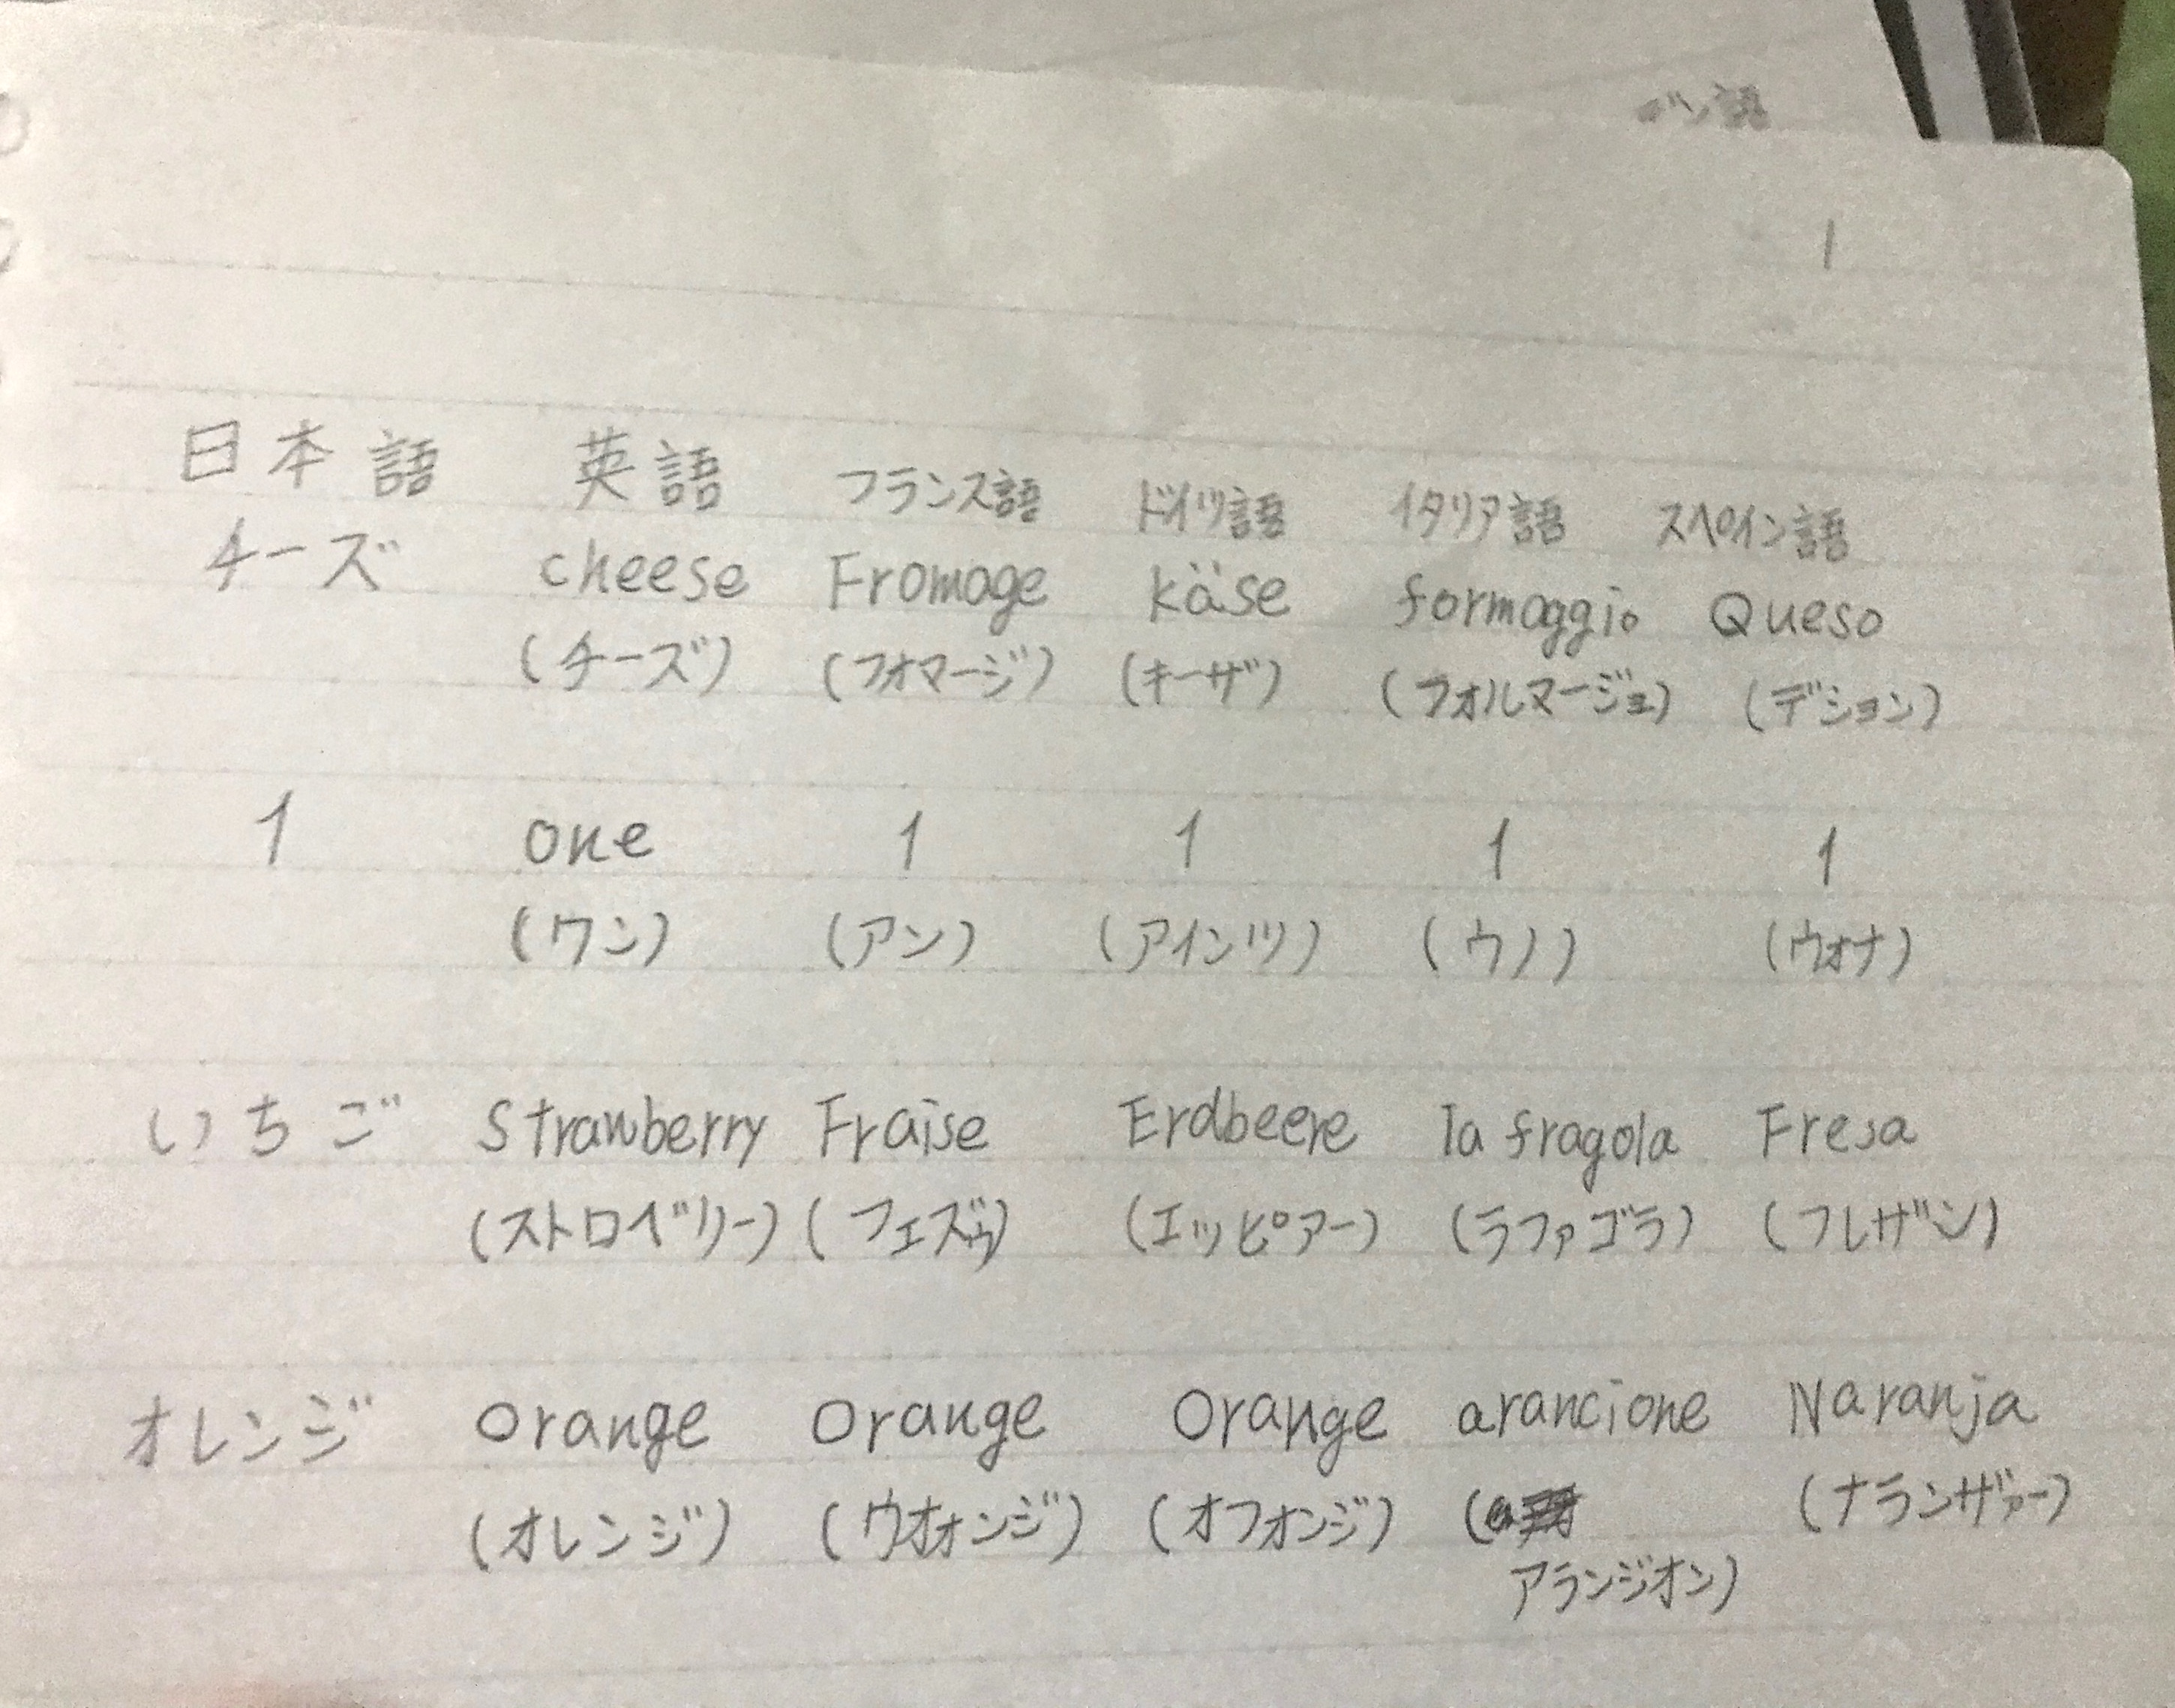 1
日本語 英語 フランス語 ドイツ語 イタリア語 スペイン語
チーズ cheese Fromage käse formaggio Queso
(チーズ) (フオマージ) (キーザ) (フォルマージョ) (デション)
1 one 1 1 1 1
(ワン) (アン) (アインツ) (ウノ) (ウォナ)
いちご Strawberry Fraise Erdbeere la fragola Fresa
(ストロベリー) (フェズゥ) (エッピアー) (ラファゴラ) (フレザン)
オレンジ orange orange orange arancione Naranja
(オレンジ) (ウオォンジ) (オフオンジ) ( (ナランザァー)
アランジオン)